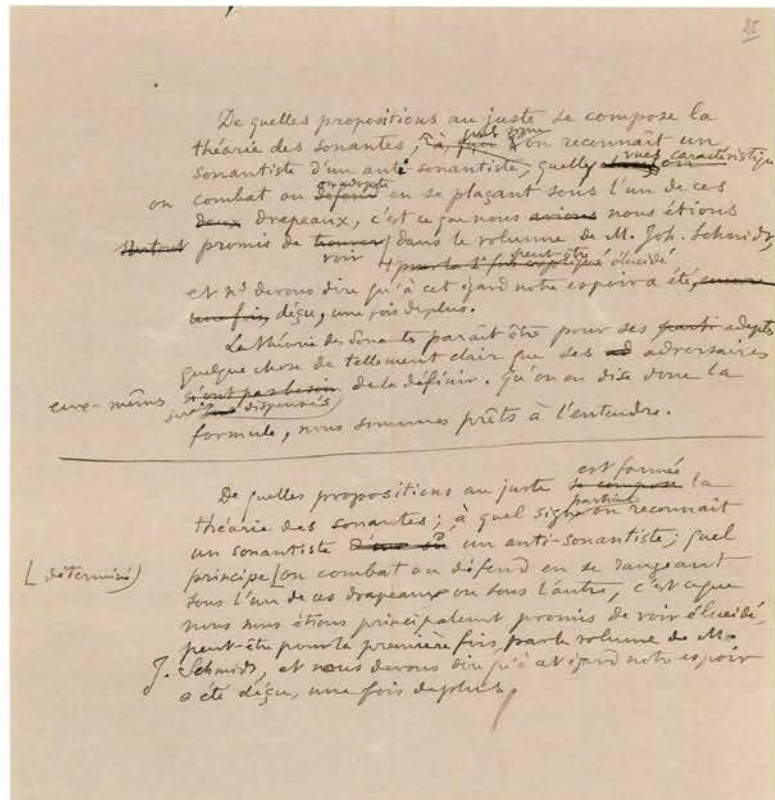 25
De quelles propositions au juste se compose la
quel signe
théorie des sonantes, à quoi on reconnaît un
sonantiste d'un anti-sonantiste, quelles vues caractéristiques
on combat ou défend en se plaçant sous l'un de ces
on adopte
deux drapeaux, c'est ce que nous avions nous étions
surtout promis de trouver dans le volume de M. Joh. Schmidt,
voir peut-être élucidé
pour la 1e fois expliqué
et ns devons dire qu'à cet égard notre espoir a été, encore
une fois, déçu, une fois de plus.
La théorie des Sonantes paraît être pour ses parti adeptes
quelque chose de tellement clair que ses ad adversaires
eux-mêmes n'ont pas besoin de la définir. Qu'on en dise donc la
dispensés
formule, nous sommes prêts à l'entendre.
est formée
De quelles propositions au juste se compose la
particul
théorie des sonantes; à quel signe on reconnaît
un sonantiste d'un ou un anti-sonantiste; quel
(déterminé)
principe on combat ou défend en se rangeant
sous l'un de ces drapeaux ou sous l'autre, c'est ce que
nous nous étions principalement promis de voir élucidé,
peut-être pour la première fois, par le volume de M.
J. Schmidt, et nous devons dire qu'à cet égard notre espoir
a été déçu, une fois de plus.